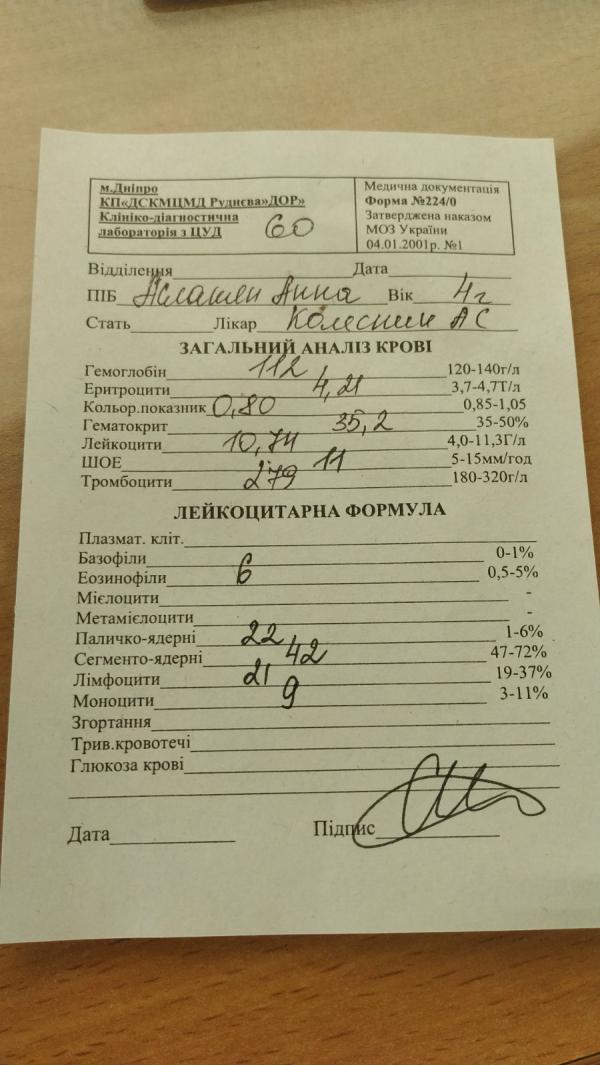 м.Дніпро
КП«ДСКМЦМД Руднєва»ДОР»
Клініко-діагностична
лабораторія з ЦУД 60
Медична документація
Форма №224/0
Затверджена наказом
МОЗ України
04.01.2001р. №1
Відділення Дата
ПІБ Асланян Анна Вік 4г
Стать Лікар Колесник АС
ЗАГАЛЬНИЙ АНАЛІЗ КРОВІ
Гемоглобін 112 120-140г/л
Еритроцити 4,21 3,7-4,7Т/л
Кольор.показник 0,80 0,85-1,05
Гематокрит 35,2 35-50%
Лейкоцити 10,74 4,0-11,3Г/л
ШОЕ 11 5-15мм/год
Тромбоцити 279 180-320г/л
ЛЕЙКОЦИТАРНА ФОРМУЛА
Плазмат. кліт.
Базофіли 0-1%
Еозинофіли 6 0,5-5%
Мієлоцити -
Метамієлоцити -
Паличко-ядерні 22 1-6%
Сегменто-ядерні 42 47-72%
Лімфоцити 21 19-37%
Моноцити 9 3-11%
Згортання
Трив.кровотечі
Глюкоза крові
Дата Підпис